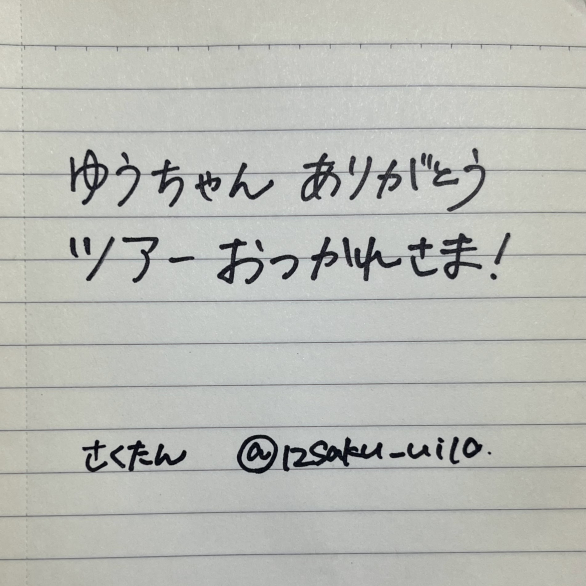 ゆうちゃん ありがとう
ツアー おつかれさま!
さくたん @12saku_ui10.